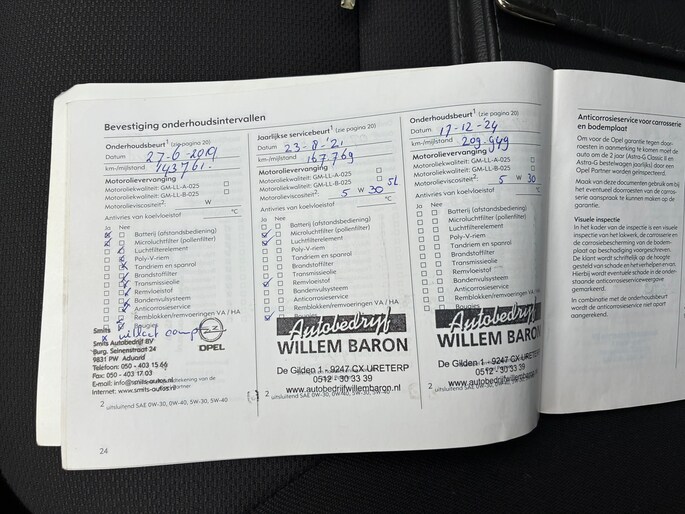 Bevestiging onderhoudsintervallen
Onderhoudsbeurt¹ (zie pagina 20)
Datum 27-6-2019
km-/mijlstand 143761.
Motorolievervanging
Motoroliekwaliteit: GM-LL-A-025
Motoroliekwaliteit: GM-LL-B-025
Motorolieviscositeit². W
Antivries van koelvloeistof °C
Ja Nee
Batterij (afstandsbediening)
Microluchtfilter (pollenfilter)
Luchtfilterelement
Poly-V-riem
Tandriem en spanrol
Brandstoffilter
Transmissieolie
Remvloeistof
Bandenvulsysteem
Anticorrosieservice
Remblokken/remvoeringen VA / HA
Bougies
Smits
Smits Autobedrijf BV
Burg. Seinenstraat 24
9831 PW Aduard
Telefoon: 050 - 403 15 66
Fax: 050 - 403 17 03
E-mail: info@smits-autos.nl
Internet: www.smits-autos.nl
OPEL
2 uitsluitend SAE 0W-30, 0W-40, 5W-30, 5W-40
24
Jaarlijkse servicebeurt¹ (zie pagina 20)
Datum 23-8-'21
km-/mijlstand 167.769
Motorolievervanging
Motoroliekwaliteit: GM-LL-A-025
Motoroliekwaliteit: GM-LL-B-025
Motorolieviscositeit². 5 W 30 5L
Antivries van koelvloeistof °C
Ja Nee
Batterij (afstandsbediening)
Microluchtfilter (pollenfilter)
Luchtfilterelement
Poly-V-riem
Tandriem en spanrol
Brandstoffilter
Transmissieolie
Remvloeistof
Bandenvulsysteem
Anticorrosieservice
Remblokken/remvoeringen VA / HA
Bougies
Autobedrijf
WILLEM BARON
De Gilden 1 - 9247 CX URETERP
0512 - 30 33 39
www.autobedrijfwillembaron.nl
2 uitsluitend SAE 0W-30, 0W-40, 5W-30, 5W-40
Onderhoudsbeurt¹ (zie pagina 20)
Datum 17-12-24
km-/mijlstand 209.949
Motorolievervanging
Motoroliekwaliteit: GM-LL-A-025
Motoroliekwaliteit: GM-LL-B-025
Motorolieviscositeit². 5 W 30
Antivries van koelvloeistof °C
Ja Nee
Batterij (afstandsbediening)
Microluchtfilter (pollenfilter)
Luchtfilterelement
Poly-V-riem
Tandriem en spanrol
Brandstoffilter
Transmissieolie
Remvloeistof
Bandenvulsysteem
Anticorrosieservice
Remblokken/remvoeringen VA / HA
Bougies
Autobedrijf
WILLEM BARON
De Gilden 1 - 9247 CX URETERP
0512 - 30 33 39
www.autobedrijfwillembaron.nl
2 uitsluitend SAE 0W-30, 0W-40, 5W-30, 5W-40
Anticorrosieservice voor carrosserie
en bodemplaat
Om voor de Opel garantie tegen door-
roesten in aanmerking te komen moet de
auto om de 2 jaar (Astra-G Classic II en
Astra-G bestelwagen jaarlijks) door een
Opel Partner worden geïnspecteerd.
Maak van deze documenten gebruik om bij
het eventueel doorroesten van de carros-
serie aanspraak te kunnen maken op de
garantie.
Visuele inspectie
In het kader van de inspectie is een visuele
inspectie van het lakwerk, de carrosserie en
de corrosiebescherming van de bodem-
plaat op beschadiging voorgeschreven.
De klant wordt schriftelijk op de hoogte
gesteld van schade en het verhelpen ervan.
Hierbij wordt eventuele schade in de onder-
staande anticorrosieserviceweergave
gemarkeerd.
In combinatie met de onderhoudsbeurt
wordt de anticorrosieservice niet apart
aangerekend.